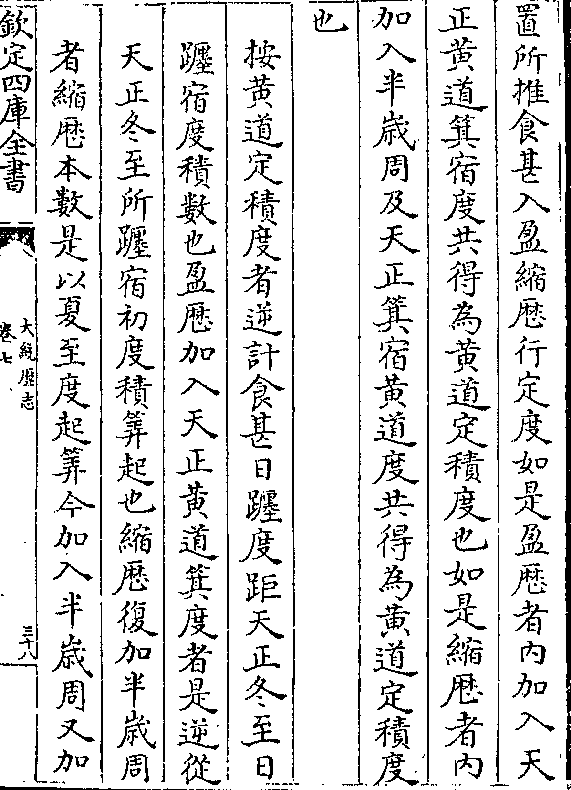 置所推食甚入盈縮厯行定度如是盈厯者內加入天
正黃道箕宿度共得為黃道定積度也如是縮厯者內
加入半歲周及天正箕宿黃道度共得為黃道定積度
也
按黃道定積度者逆計食甚日躔度距天正冬至日
躔宿度積數也盈厯加入天正黃道箕度者是逆從
天正冬至所躔宿初度積筭起也縮厯復加半歲周
者縮厯本數是以夏至度起筭今加入半歲周又加
欽定四庫全書
大統厯志
卷七
三十八